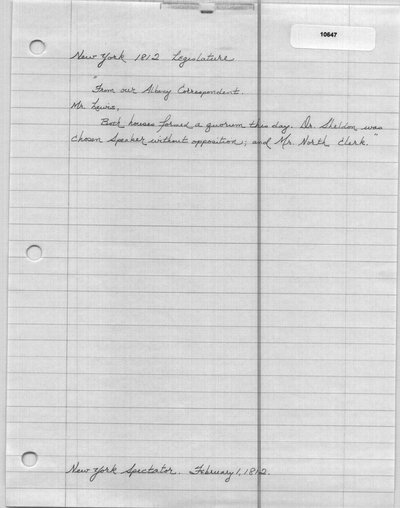 10647
New York 1812 Legislature
"From our Albany Correspondent.
Mr. Lewis,
Both houses formed a quorum this day. Dr. Sheldon was
chosen Speaker without opposition; and Mr. North Clerk."
New York Spectator. February 1, 1812.